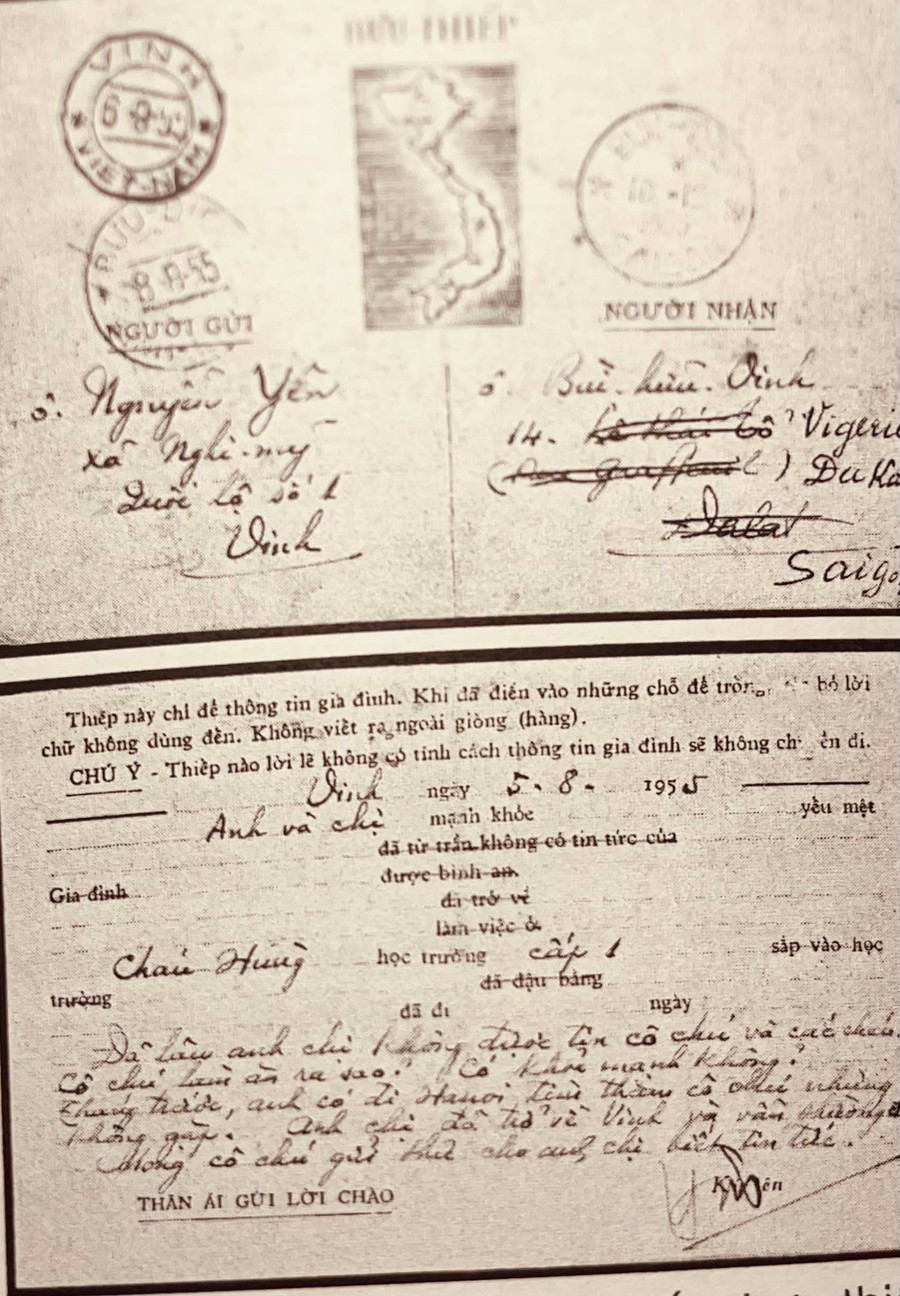 BƯU THIẾP
VINH
6-8-55
VIET-NAM
BƯU
8-55
NGƯỜI GỬI
NGƯỜI NHẬN
ô. Nguyễn Yên
xã Nghi-mỹ
Quốc lộ số 1
Vinh
ô. Bùi-hữu-Vinh
14. Lê thái Tổ Vigerie
DaKa
Dalat
Saigo
Thiếp này chỉ để thông tin gia đình. Khi đã điền vào những chỗ để trống, bỏ lời
chữ không dùng đến. Không viết ra ngoài giòng (hàng).
CHÚ Ý - Thiếp nào lời lẽ không có tính cách thông tin gia đình sẽ không đi.
Vinh ngày 5-8-1955
Anh và chị mạnh khỏe yếu mệt
đã từ trần không có tin tức của
Gia đình được bình an.
đã trở về
làm việc ở
Cháu Hùng học trường cấp 1 sắp vào học
trường đã đậu bằng
đã đi ngày
Đã lâu anh chị không được tin cô chú và các cháu.
Cô chú làm ăn ra sao? Có khỏe mạnh không?
Tháng trước, anh có đi Hanoi tìm thăm cô chú nhưng
không gặp. Anh chị đã trở về Vinh và vẫn thường
Mong cô chú gửi thư cho anh chị biết tin tức.
THÂN ÁI GỬI LỜI CHÀO
Ký tên